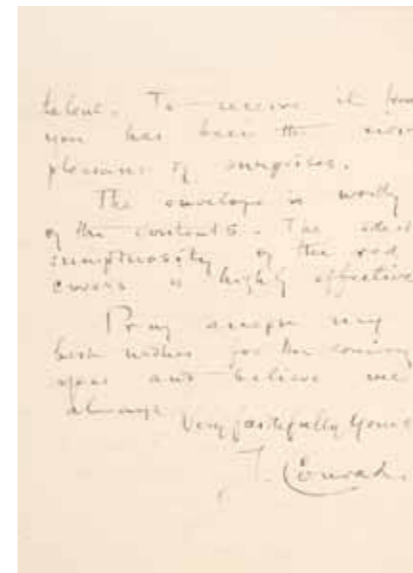 talent. To receive it from
you has been the most
pleasant of surprises.
The envelope is worthy
of the contents. The
sumptuosity of the red
covers is highly effective
Pray accept my
best wishes for the coming
year and believe me
always
Very faithfully Yours
J. Conrad.